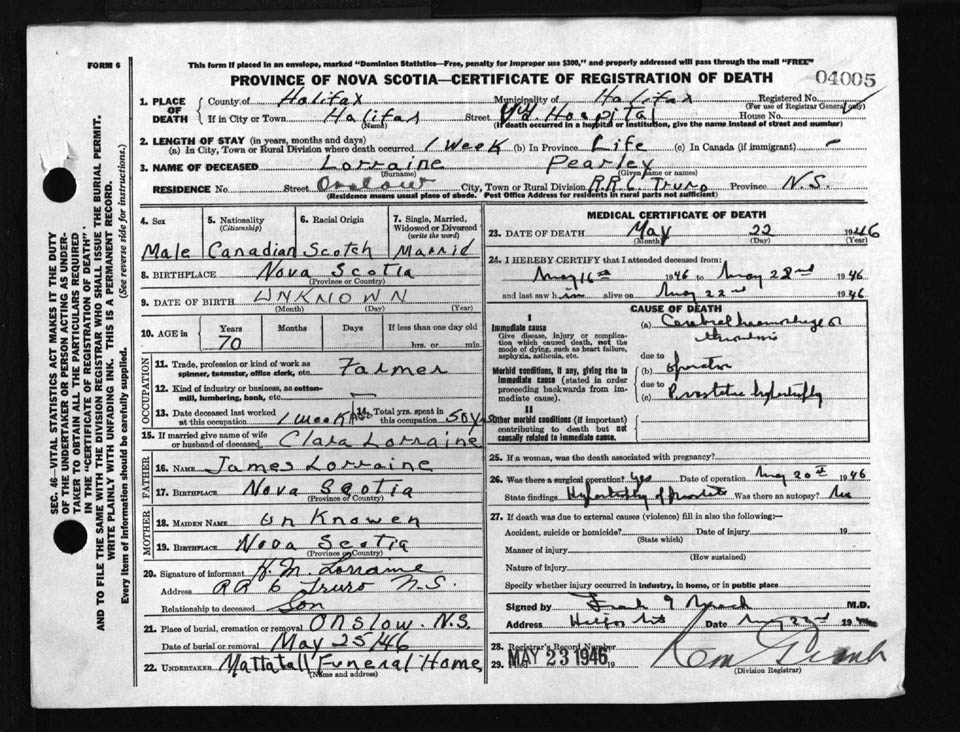 FORM 6
This form if placed in an envelope, marked "Dominion Statistics—Free, penalty for improper use $300," and properly addressed will pass through the mail "FREE"
PROVINCE OF NOVA SCOTIA—CERTIFICATE OF REGISTRATION OF DEATH
04005
1. PLACE OF DEATH
County of Halifax Municipality of Halifax Registered No.
(For use of Registrar General only)
If in City or Town Halifax Street V.G. Hospital House No.
(Name) (If death occurred in a hospital or institution, give the name instead of street and number)
2. LENGTH OF STAY (in years, months and days)
(a) In City, Town or Rural Division where death occurred 1 Week (b) In Province Life (c) In Canada (if immigrant) -
3. NAME OF DECEASED Lorraine Pearley
(Surname) (Given name or names)
RESIDENCE No. Street Onslow City, Town or Rural Division R.R. 6 Truro Province N.S.
(Residence means usual place of abode. Post Office Address for residents in rural parts not sufficient)
4. Sex
Male
5. Nationality
(Citizenship)
Canadian
6. Racial Origin
Scotch
7. Single, Married, Widowed or Divorced
(write the word)
Marrid
8. BIRTHPLACE Nova Scotia
(Province or Country)
9. DATE OF BIRTH UNKNOWN
(Month) (Day) (Year)
10. AGE in Years Months Days If less than one day old
70 hrs. or min.
OCCUPATION
11. Trade, profession or kind of work as Farmer
spinner, teamster, office clerk, etc.
12. Kind of industry or business, as cotton-
mill, lumbering, bank, etc.
13. Date deceased last worked at this occupation 1 week 14. Total yrs. spent in this occupation 50 y
15. If married give name of wife
or husband of deceased Clara Lorraine
FATHER
16. NAME James Lorraine
17. BIRTHPLACE Nova Scotia
(Province or Country)
MOTHER
18. MAIDEN NAME Un Knowen
19. BIRTHPLACE Nova Scotia
(Province or Country)
20. Signature of informant H.M. Lorraine
Address RR 6 Truro N.S.
Relationship to deceased Son
21. Place of burial, cremation or removal Onslow. N.S.
Date of burial or removal May 25/46
22. UNDERTAKER Mattatall Funeral Home
(Name and address)
MEDICAL CERTIFICATE OF DEATH
23. DATE OF DEATH May 22 1946
(Month) (Day) (Year)
24. I HEREBY CERTIFY that I attended deceased from
May 16th 1946 to May 22nd 1946
and last saw him alive on May 22nd 1946
CAUSE OF DEATH
I
Immediate cause
Give disease, injury or complication which caused death, not the mode of dying, such as heart failure, asphyxia, asthenia, etc.
(a) Cerebral haemorrhage or
thrombosis
due to
Morbid conditions, if any, giving rise to immediate cause (stated in order proceeding backwards from immediate cause).
(b) Operation
due to
(c) Prostatic hypertrophy
II
Other morbid conditions (if important) contributing to death but not causally related to immediate cause.
25. If a woman, was the death associated with pregnancy?
26. Was there a surgical operation? yes Date of operation May 20th 1946
State findings Hypertrophy of prostate Was there an autopsy? No
27. If death was due to external causes (violence) fill in also the following:—
Accident, suicide or homicide? Date of injury 19
(State which)
Manner of injury
(How sustained)
Nature of injury
Specify whether injury occurred in industry, in home, or in public place
Signed by Frank G M.D.
Address Halifax Date May 22nd 19
28. Registrar's Record Number
29. MAY 23 1946 19
(Division Registrar)
SEC. 46—VITAL STATISTICS ACT MAKES IT THE DUTY
OF THE UNDERTAKER OR PERSON ACTING AS UNDER-
TAKER TO OBTAIN ALL THE PARTICULARS REQUIRED
IN THE "CERTIFICATE OF REGISTRATION OF DEATH"
AND TO FILE THE SAME WITH THE DIVISION REGISTRAR WHO SHALL ISSUE THE BURIAL PERMIT.
WRITE PLAINLY WITH UNFADING INK. THIS IS A PERMANENT RECORD.
Every item of information should be carefully supplied. (See reverse side for instructions.)